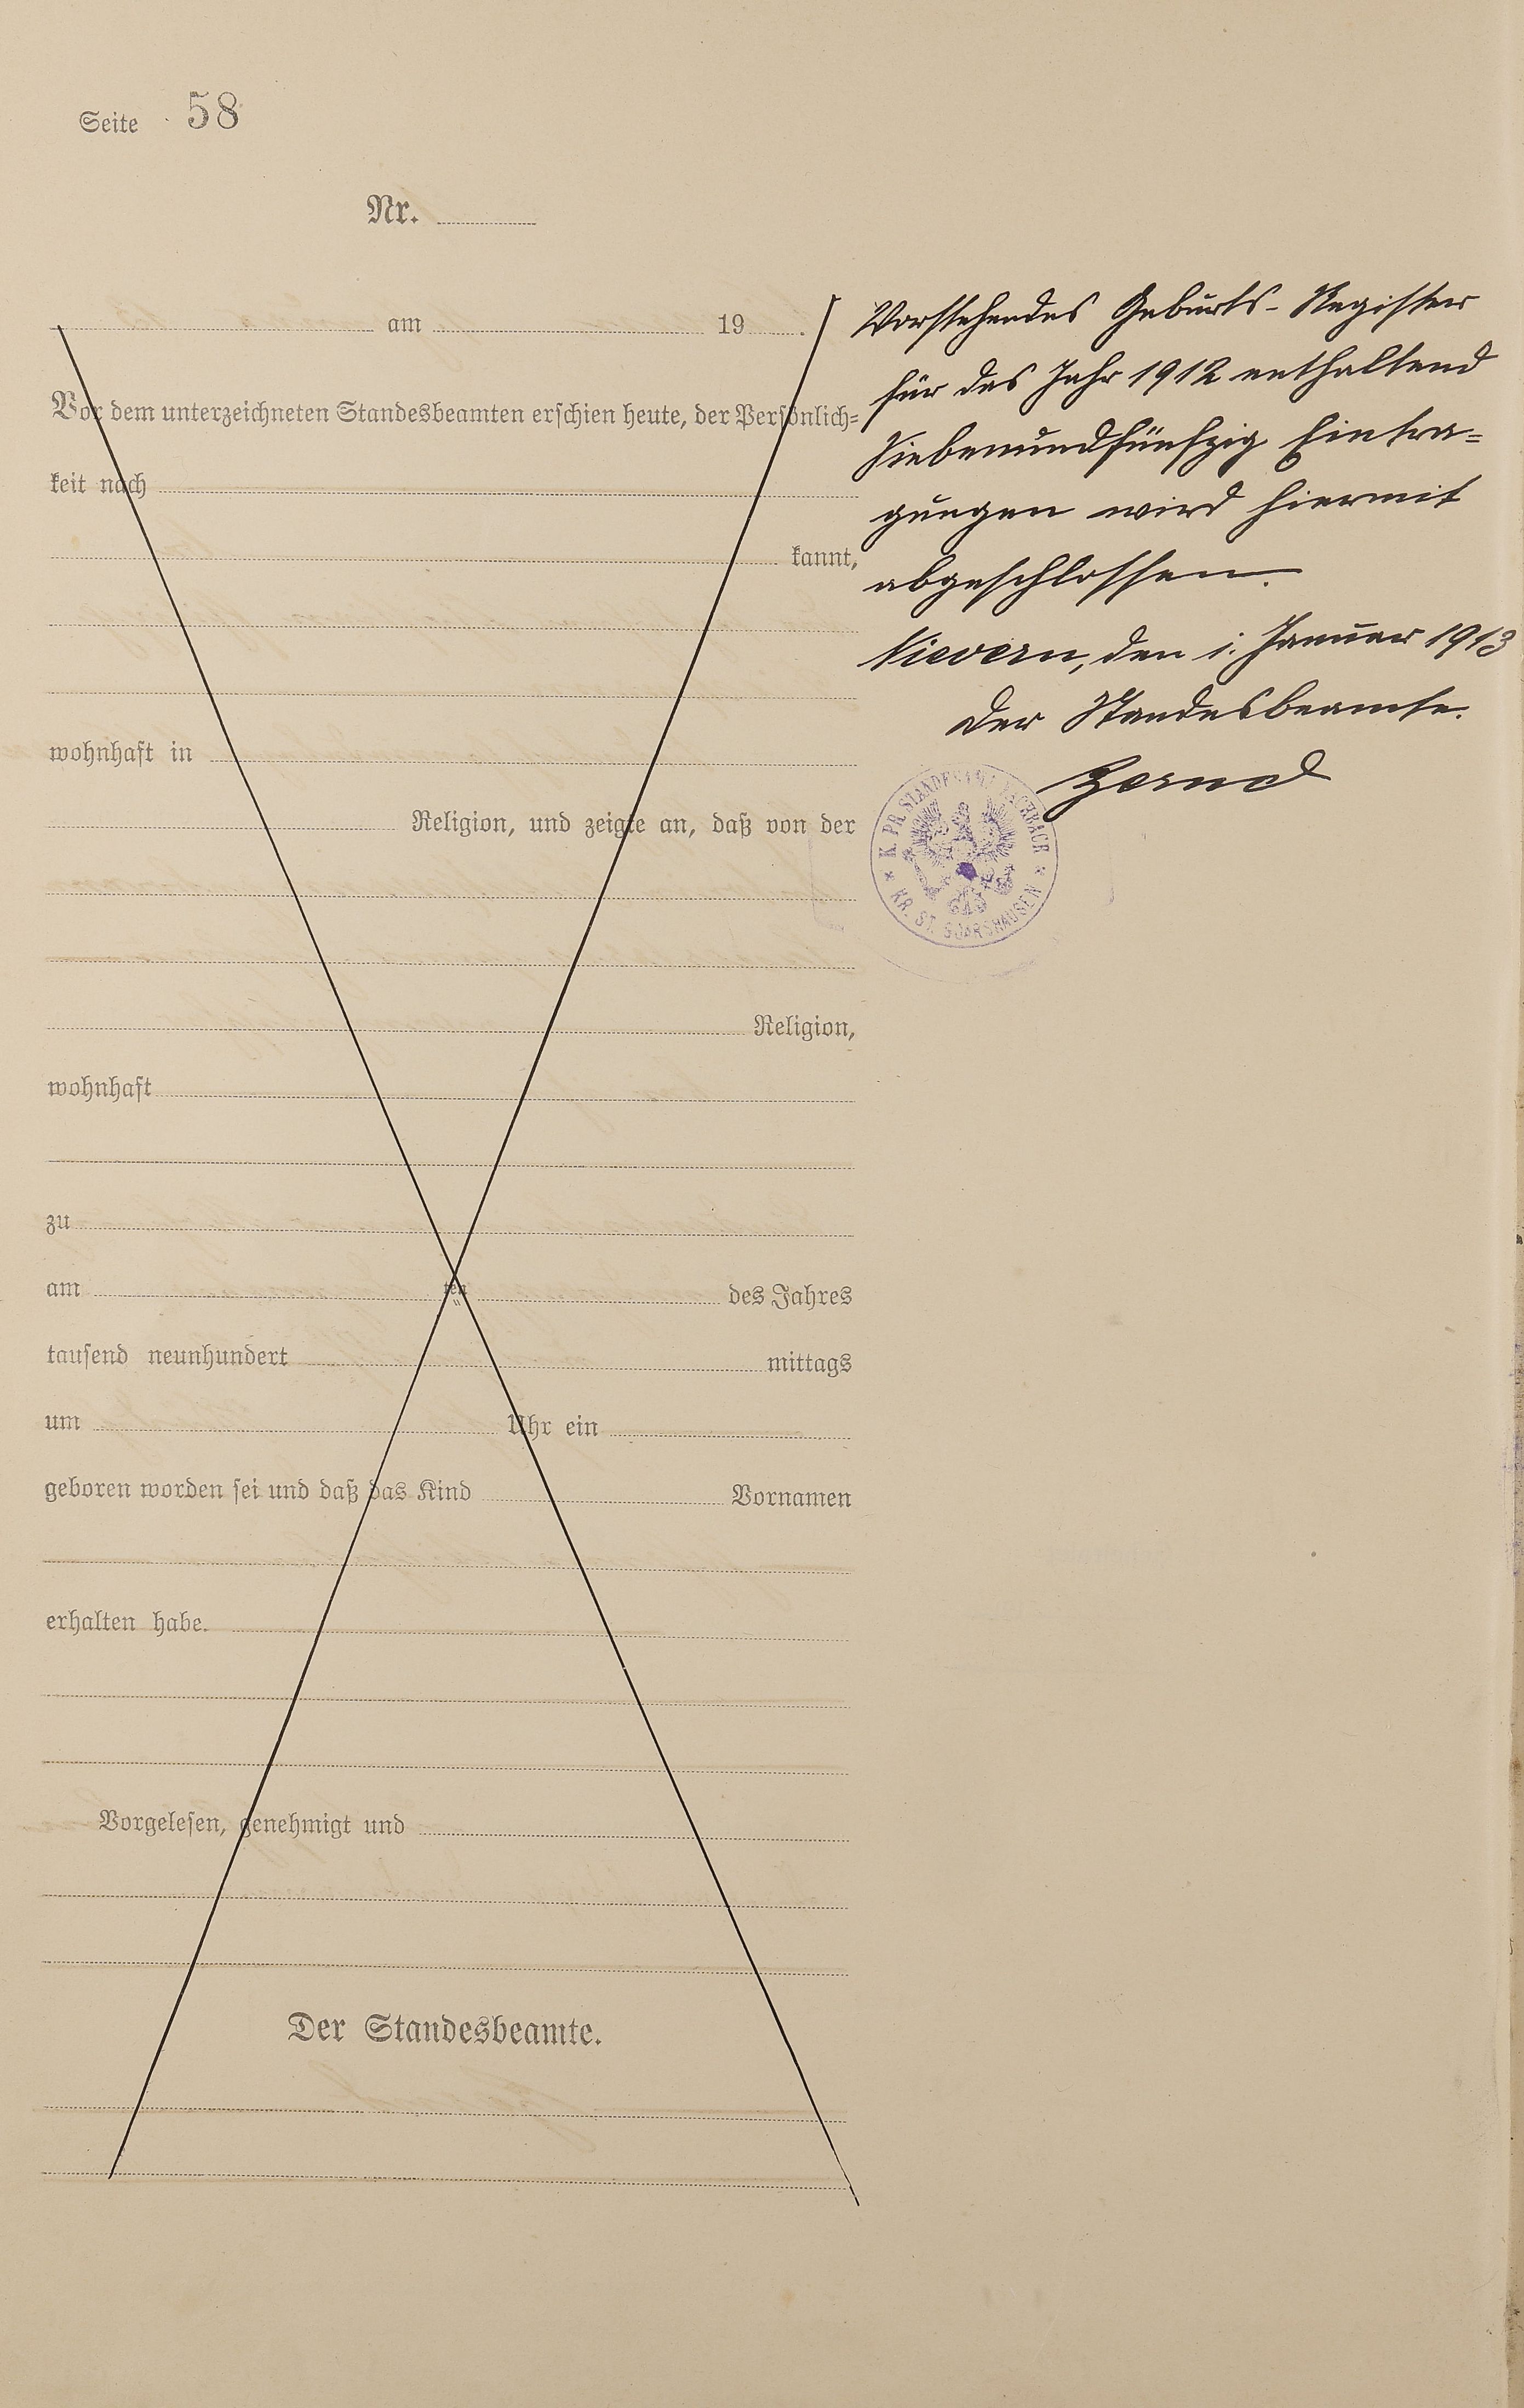 Seite 58
Nr.
am 19 .
Vor dem unterzeichneten Standesbeamten erschien heute, der Persönlich=
keit nach
kannt,
wohnhaft in
Religion, und zeigte an, daß von der
Religion,
wohnhaft
zu
am ten des Jahres
tausend neunhundert mittags
um Uhr ein
geboren worden sei und daß das Kind Vornamen
erhalten habe.
Vorgelesen, genehmigt und
Der Standesbeamte.
Vorstehendes Geburts-Register
für das Jahr 1912 enthaltend
siebenundfünfzig Eintra=
gungen wird hiermit
abgeschlossen.
Nievern, den 1. Januar 1913
Der Standesbeamte.
K. PR. STANDESAMT FACHBACH
* KR. ST. GOARSHAUSEN *